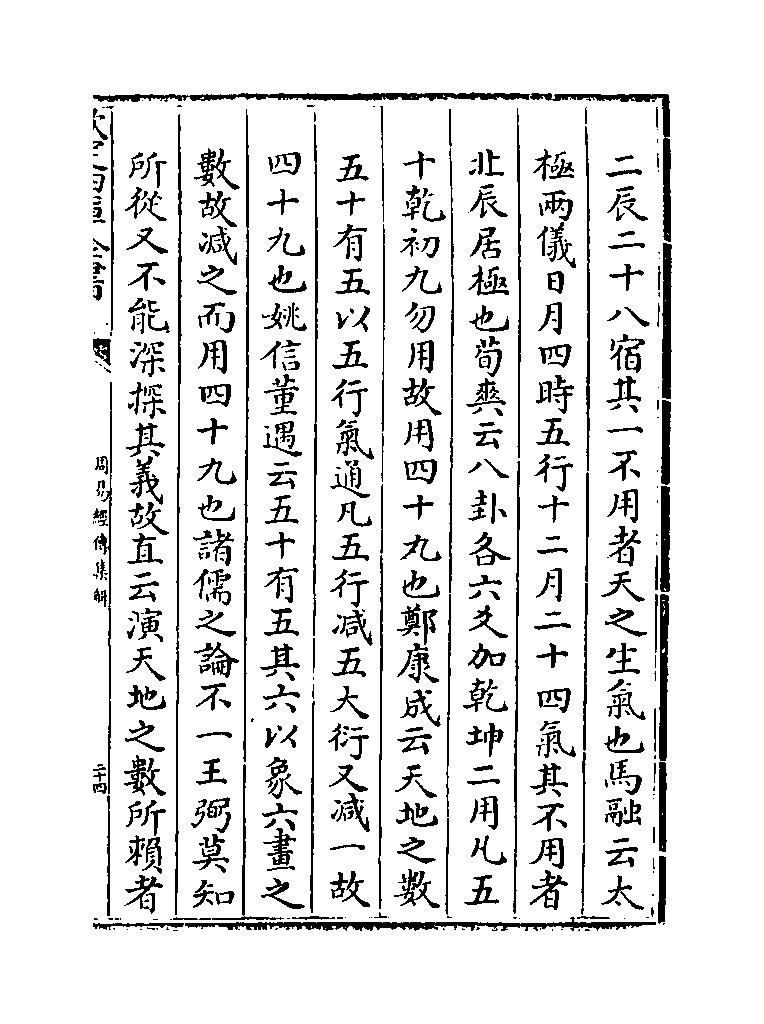 二辰二十八宿其一不用者天之生氣也馬融云太
極兩儀日月四時五行十二月二十四氣其不用者
北辰居極也荀爽云八卦各六爻加乾坤二用凡五
十乾初九勿用故用四十九也鄭康成云天地之數
五十有五以五行氣通凡五行減五大衍又減一故
四十九也姚信董遇云五十有五其六以象六畫之
數故減之而用四十九也諸儒之論不一王弼莫知
所從又不能深探其義故直云演天地之數所賴者
周易經傳集解
二十四